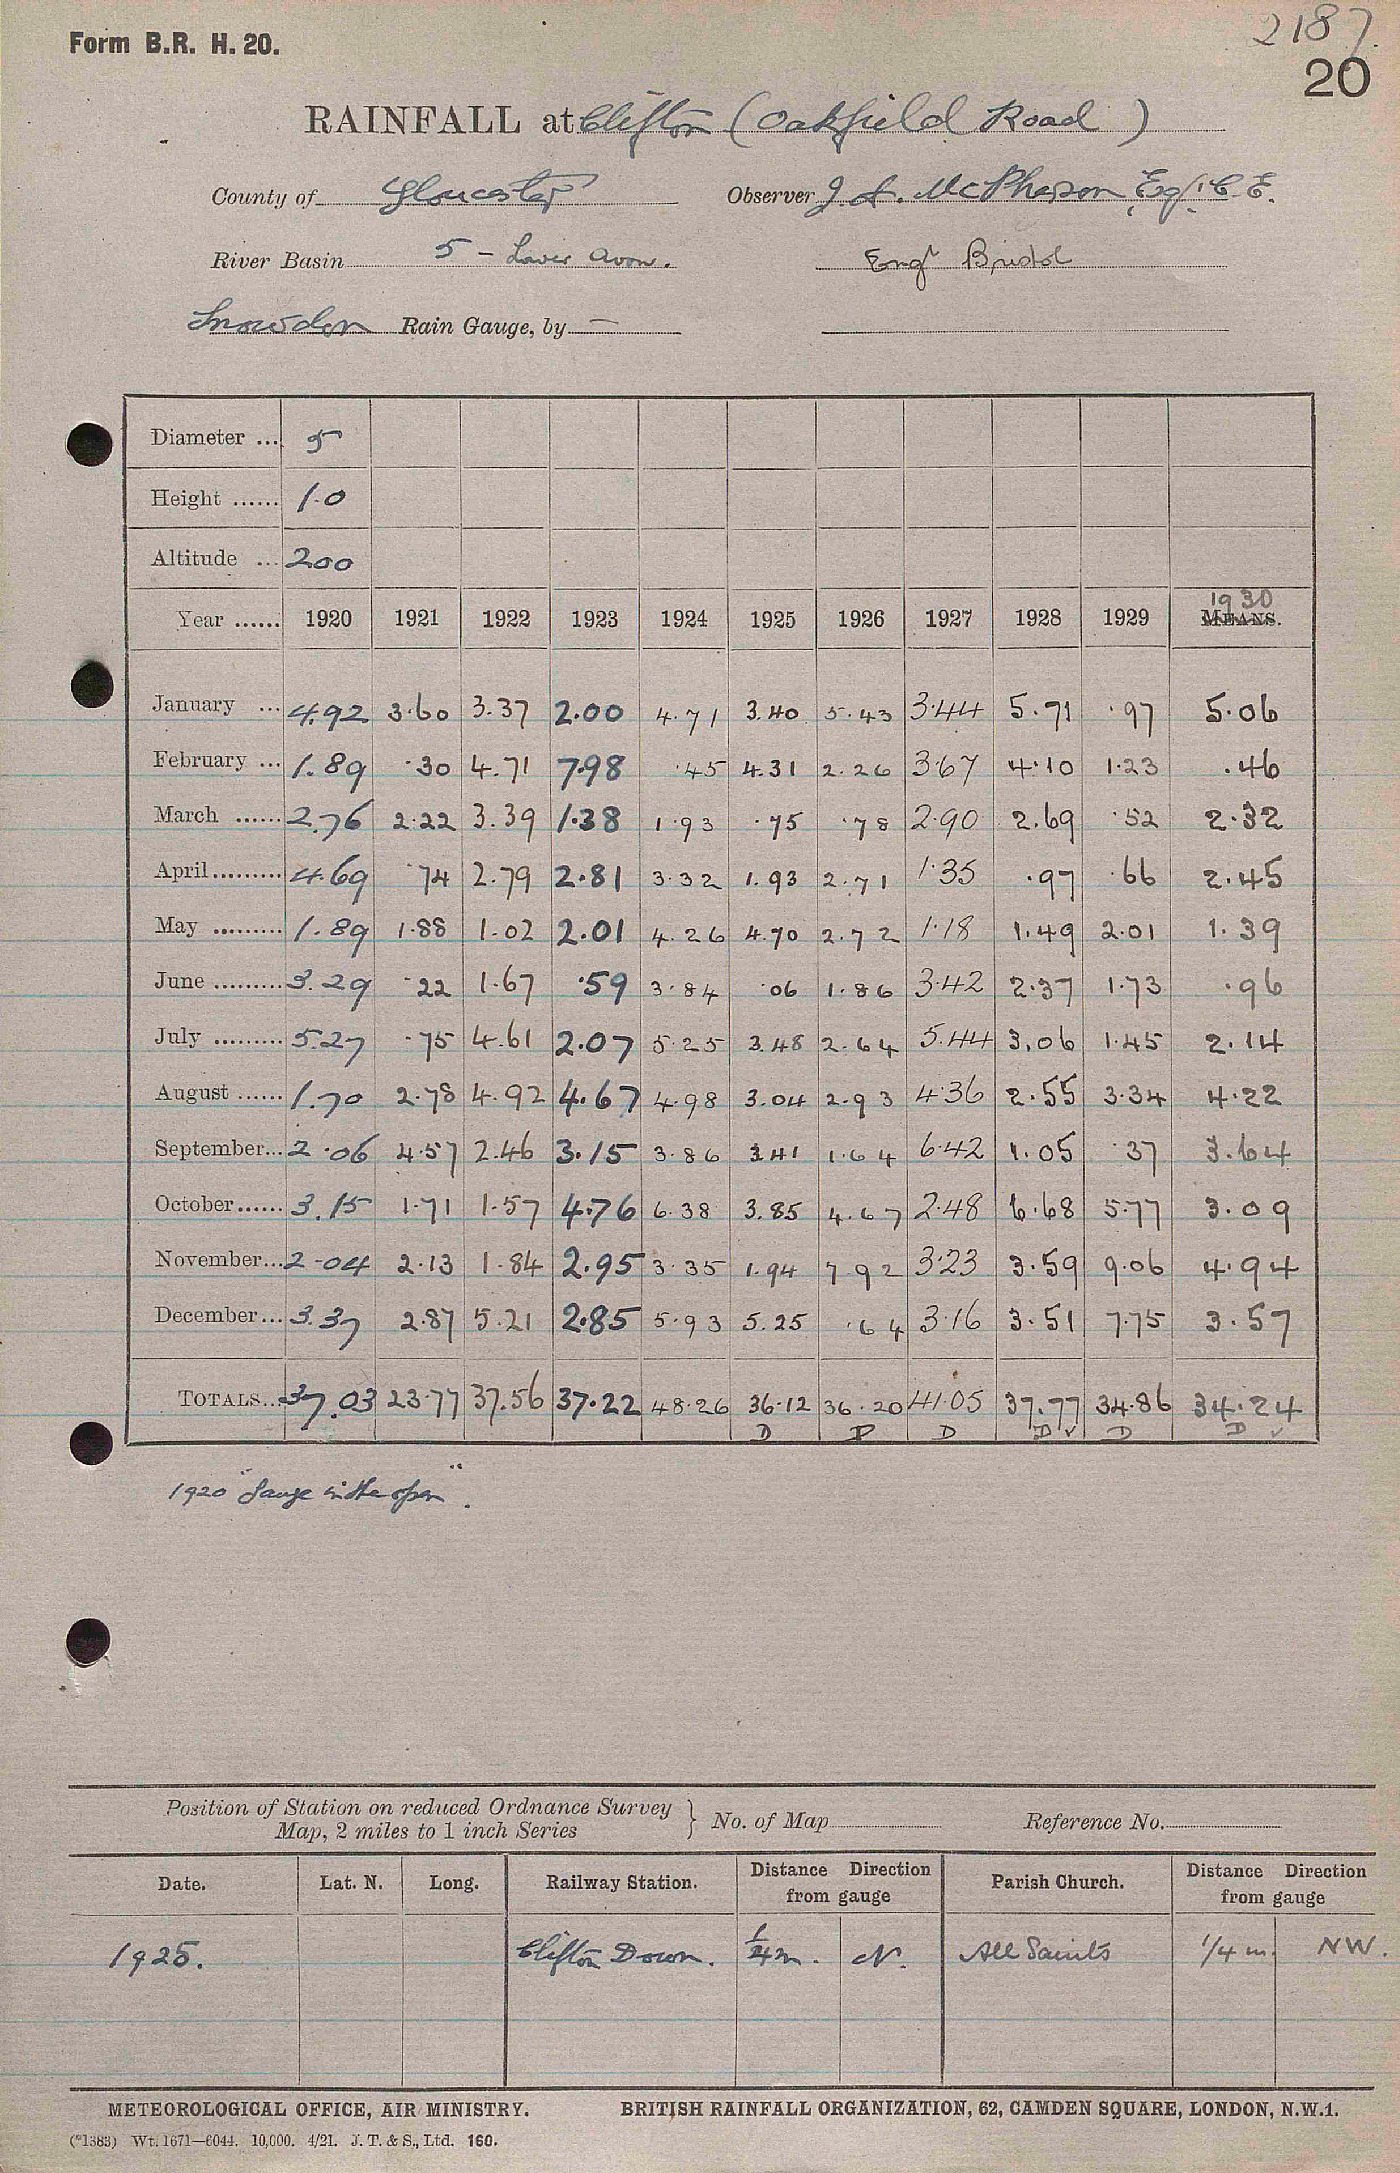 2187
Form B.R. H. 20.
20
RAINFALL at Clifton (Oakfield Road)
County of Gloucester Observer J. A. McPherson Esq. C.E.
River Basin 5 - Lower Avon. Engr Bristol
Snowdon Rain Gauge, by —
Diameter ... 5
Height ...... 1.0
Altitude ... 200
1930
Year ...... 1920 1921 1922 1923 1924 1925 1926 1927 1928 1929 MEANS.
January ... 4.92 3.60 3.37 2.00 4.71 3.40 5.43 3.44 5.71 .97 5.06
February ... 1.89 .30 4.71 7.98 .45 4.31 2.26 3.67 4.10 1.23 .46
March ...... 2.76 2.22 3.39 1.38 1.93 .75 .78 2.90 2.69 .52 2.32
April ......... 4.69 .74 2.79 2.81 3.32 1.93 2.71 1.35 .97 .66 2.45
May ......... 1.89 1.88 1.02 2.01 4.26 4.70 2.72 1.18 1.49 2.01 1.39
June ......... 3.29 .22 1.67 .59 3.84 .06 1.86 3.42 2.37 1.73 .96
July ......... 5.27 .75 4.61 2.07 5.25 3.48 2.64 5.44 3.06 1.45 2.14
August ...... 1.70 2.78 4.92 4.67 4.98 3.04 2.93 4.36 2.55 3.34 4.22
September... 2.06 4.57 2.46 3.15 3.86 3.41 1.64 6.42 1.05 .37 3.64
October...... 3.15 1.71 1.57 4.76 6.38 3.85 4.67 2.48 6.68 5.77 3.09
November... 2.04 2.13 1.84 2.95 3.35 1.94 7.92 3.23 3.59 9.06 4.94
December... 3.37 2.87 5.21 2.85 5.93 5.25 .64 3.16 3.51 7.75 3.57
TOTALS... 37.03 23.77 37.56 37.22 48.26 36.12 36.20 41.05 37.77 34.86 34.24
D D D D ✓ D D ✓
1920 "Gauge in the open".
Position of Station on reduced Ordnance Survey
Map, 2 miles to 1 inch Series } No. of Map Reference No.
Date. Lat. N. Long. Railway Station. Distance Direction from gauge Parish Church. Distance Direction from gauge
1925. Clifton Down. 1/4 m. N. All Saints 1/4 m. NW.
METEOROLOGICAL OFFICE, AIR MINISTRY. BRITISH RAINFALL ORGANIZATION, 62, CAMDEN SQUARE, LONDON, N.W.1.
(*1383) Wt. 1671—6044. 10,000. 4/21. J. T. & S., Ltd. 160.